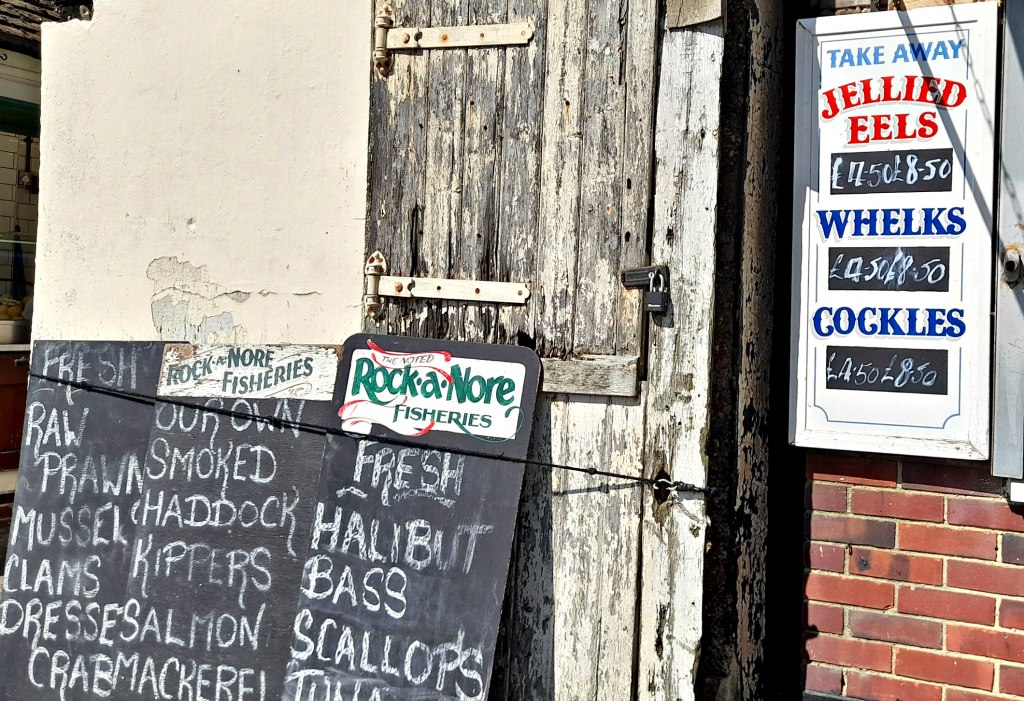 FRESH
RAW
PRAWN
MUSSEL
CLAMS
DRESSE
CRAB
ROCK·A·NORE
FISHERIES
OUR OWN
SMOKED
HADDOCK
KIPPERS
SALMON
MACKEREL
THE NOTED
Rock·a·Nore
FISHERIES
FRESH
HALIBUT
BASS
SCALLOPS
TUNA
TAKE AWAY
JELLIED
EELS
£4.50 £8.50
WHELKS
£4.50 £8.50
COCKLES
£4.50 £8.50